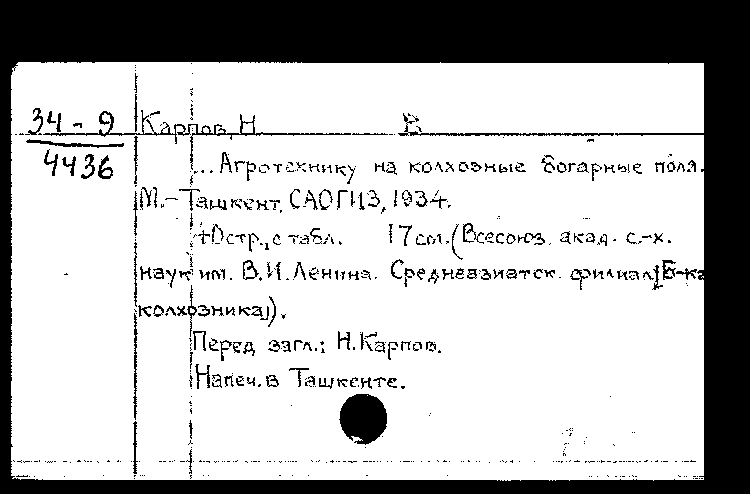 34-9
4436
Карпов, Н. В
... Агротехнику на колхозные богарные поля.
М.-Ташкент, САОГИЗ, 1934.
стр., с табл. 17 см. (Всесоюз. акад. с.-х.
наук им. В.И. Ленина. Среднеазиатск. филиал [Б-ка
колхозника]).
Перед загл.: Н. Карпов.
Напеч. в Ташкенте.